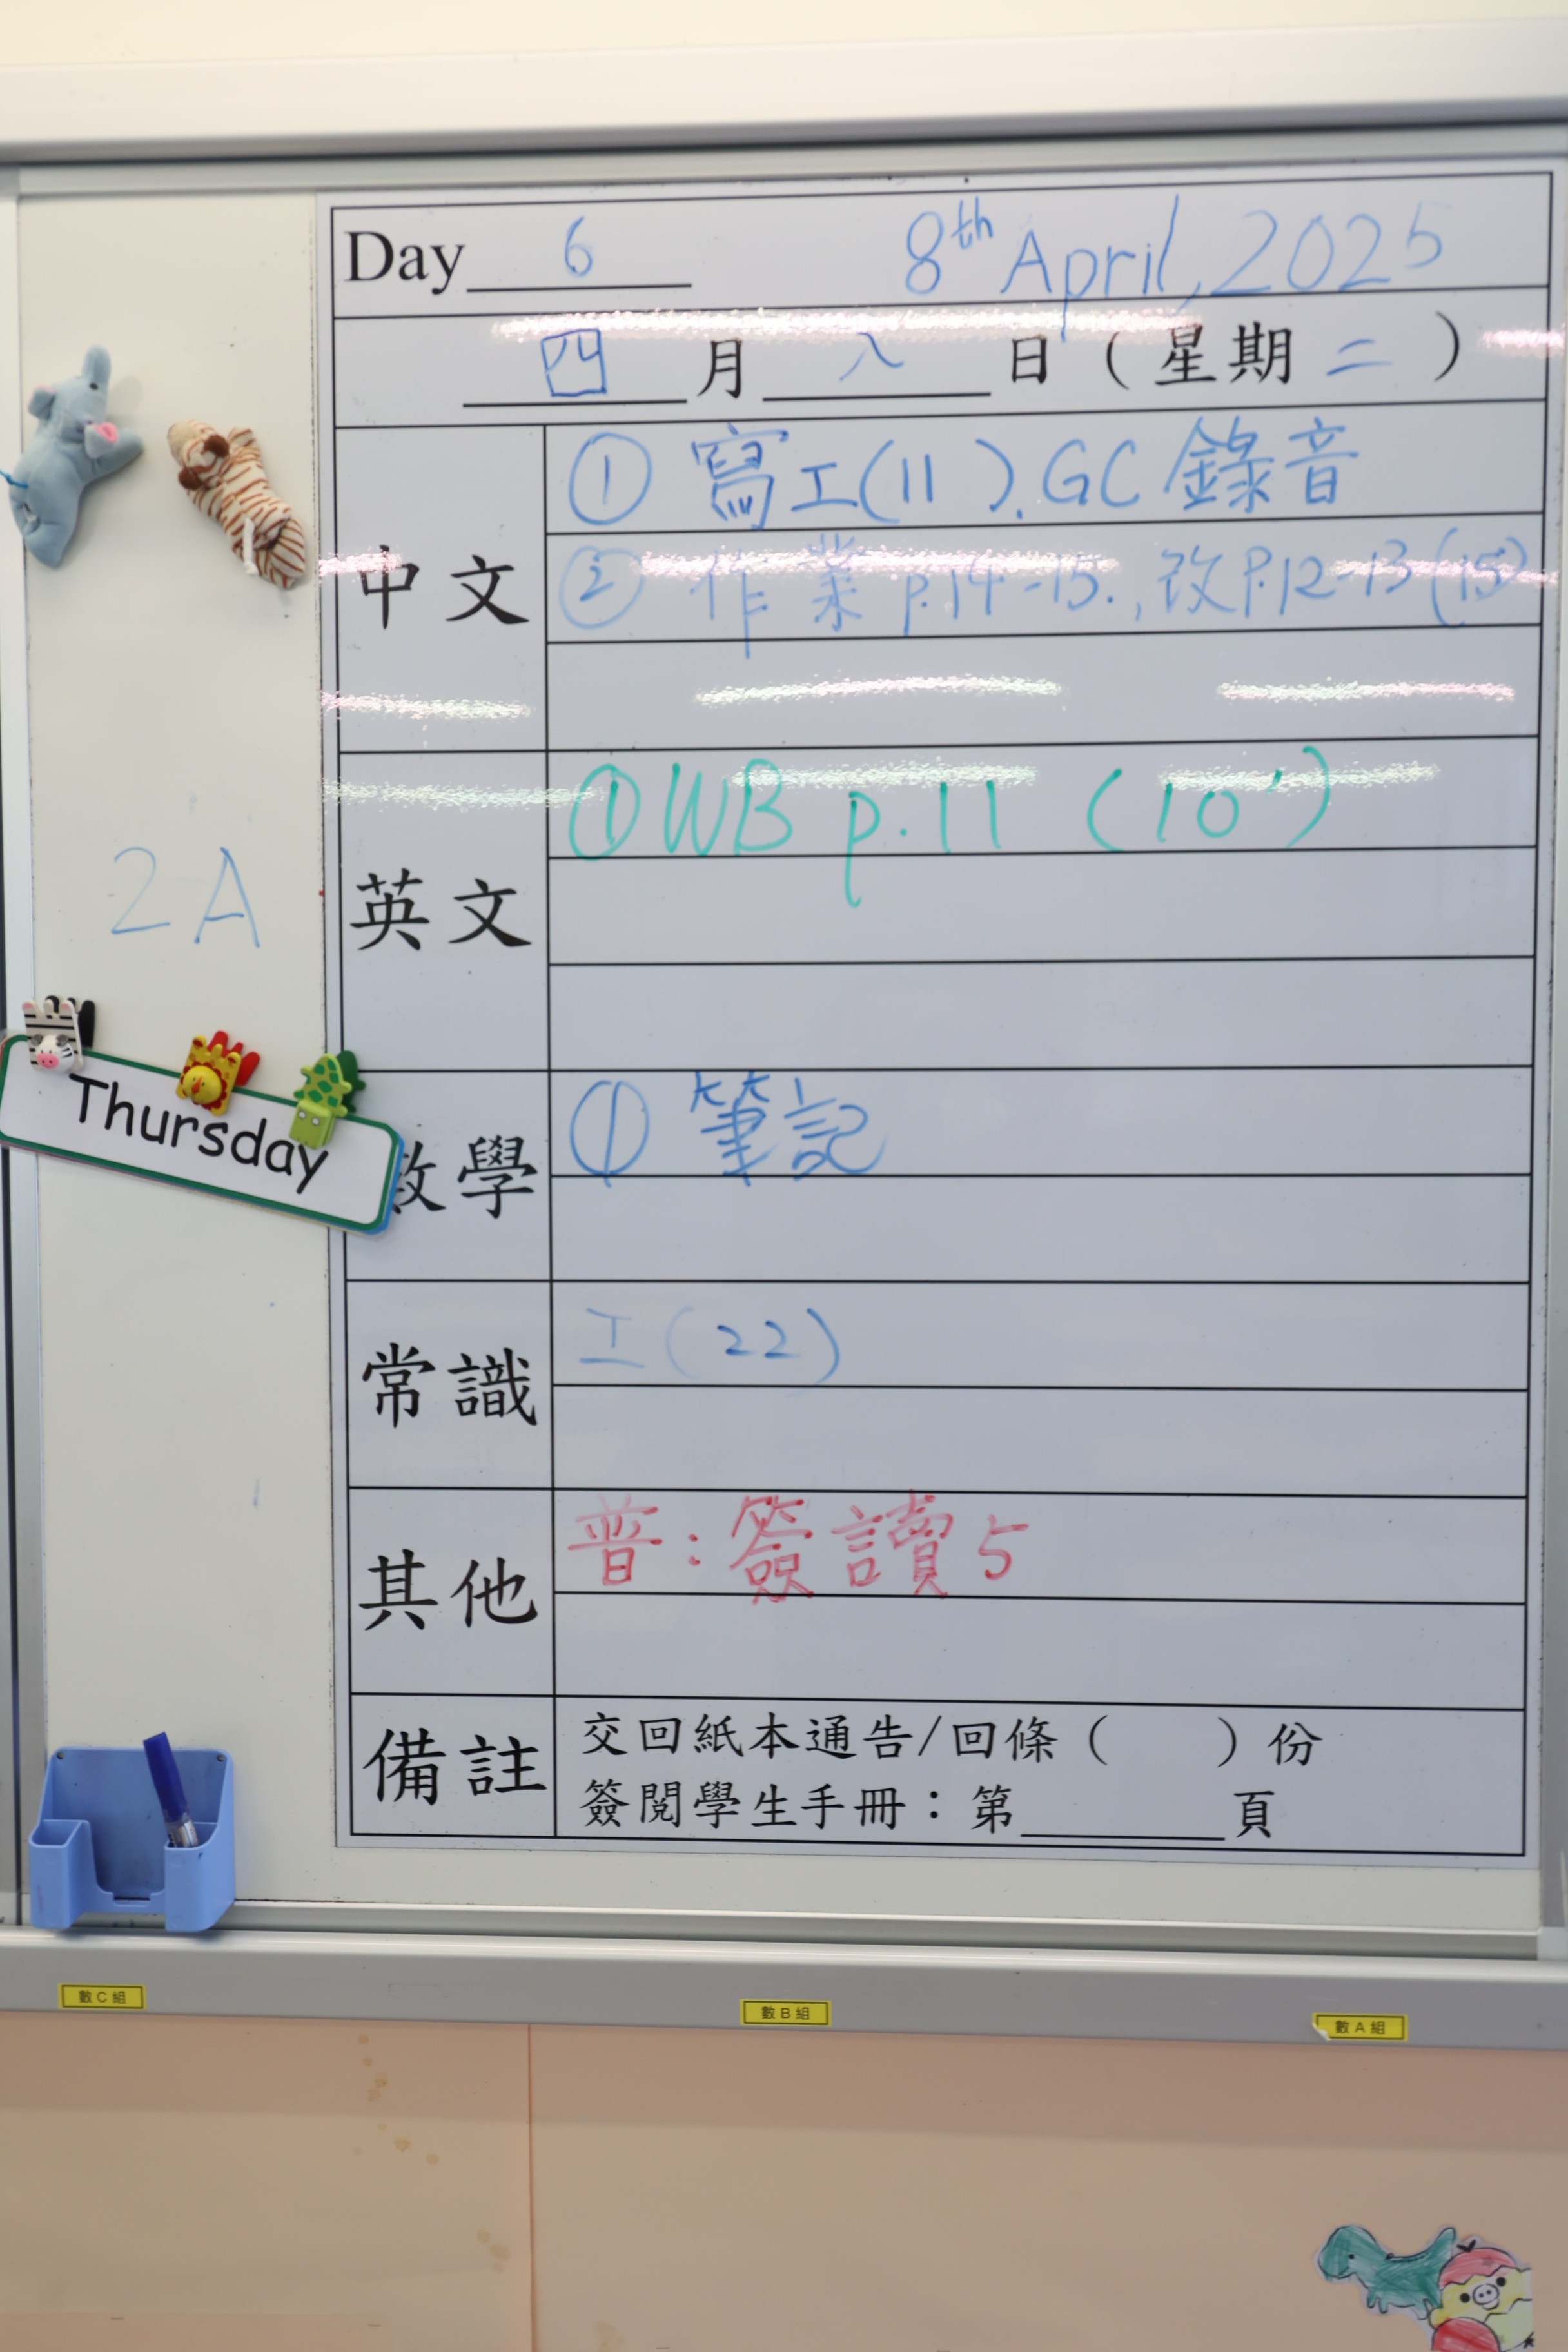 Day 6 8th April, 2025
四 月 八 日 ( 星期 二 )
中文
① 寫工(11), GC 錄音
② 作業 p.14-15., 改P.12-13 (15)
英文
① WB p.11 (10')
2A
Thursday
數學
① 筆記
常識
工(22)
其他
普:簽讀5
備註
交回紙本通告/回條( )份
簽閱學生手冊:第 頁
數C組
數B組
數A組